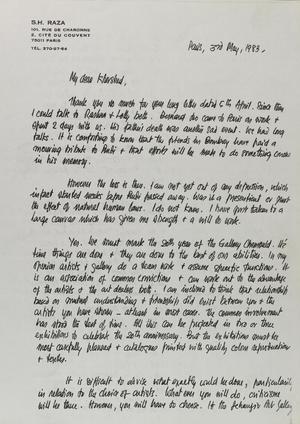 S.H. RAZA
101, RUE DE CHARONNE
2, CITÉ DU COUVENT
75011 PARIS
TÉL. 370-97-64
Paris, 3rd May, 1983.
My dear
Thank you so much for your long letter dated 6th April. Since then
I could talk to and Lolly both. came to Paris on work &
spent 2 days with us. His father's death was another sad event. We had long
talks. It is comforting to know that the friends in Bombay have paid a
moving tribute to and that efforts will be made to do something
in his memory.
However the loss is there. I am not yet out of my depression, which
in fact started weeks before passed away. Was it a presentiment or just
the effect of natural human love. I do not know. I have just taken to a
large canvas which has given me strength & a will to work.
Yes. We must mark the 20th year of the Gallery Chemould. No
things are done & they are done to the best of our abilities. In my
opinion artists & gallery do a team work & assume specific functions. It
is an association of common convictions & can work out to the advantage
of the artists & the art dealer both. I am inclined to think that relationship
based on mutual understanding & friendship did exist between you & the
artists you have shown – atleast in most cases. The common involvement
has stood the test of time. All this can be projected in two or three
exhibitions to celebrate the 20th anniversary. But the exhibitions must be
most carefully planned & catalogues printed with quality colour reproductions
& texts.
It is difficult to advice what exactly could be done, particularly
in relation to the choice of artists. Whatever you will do, criticism
will be there. However, you will have to choose. If the Jehangir Art Gallery